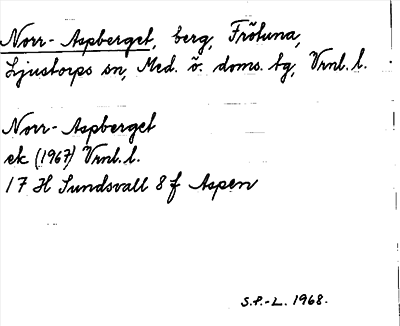 Norr-Aspberget, berg, Frötuna,
Ljustorps sn, Med. ö. doms. tg, Vrnl. l.
Norr-Aspberget
ek (1967) Vrnl. l.
17 H Sundsvall 8 f Aspen
S.P.-L. 1968.